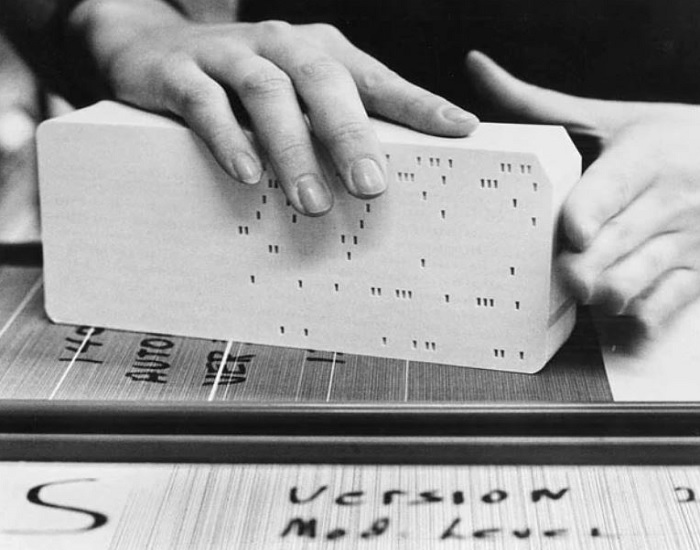 AUTO
VER
S Version
Mod. Level